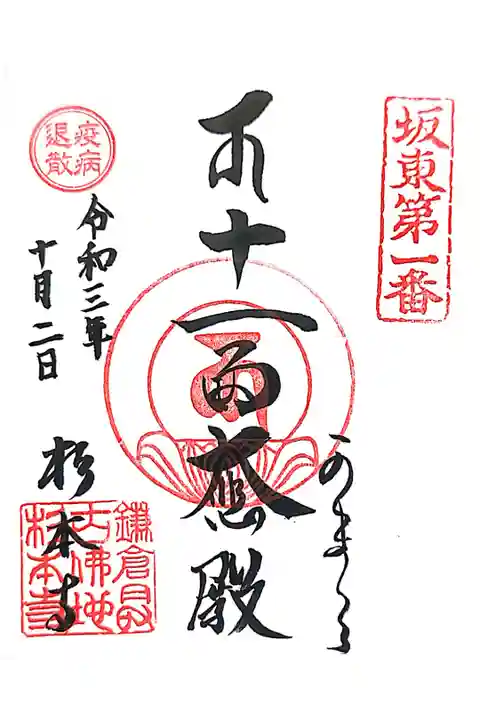 坂東第一番
かまくら
十一面大悲殿
疫病
退散
令和三年
十月二日
杉本寺
鎌倉最
古佛地
杉本寺